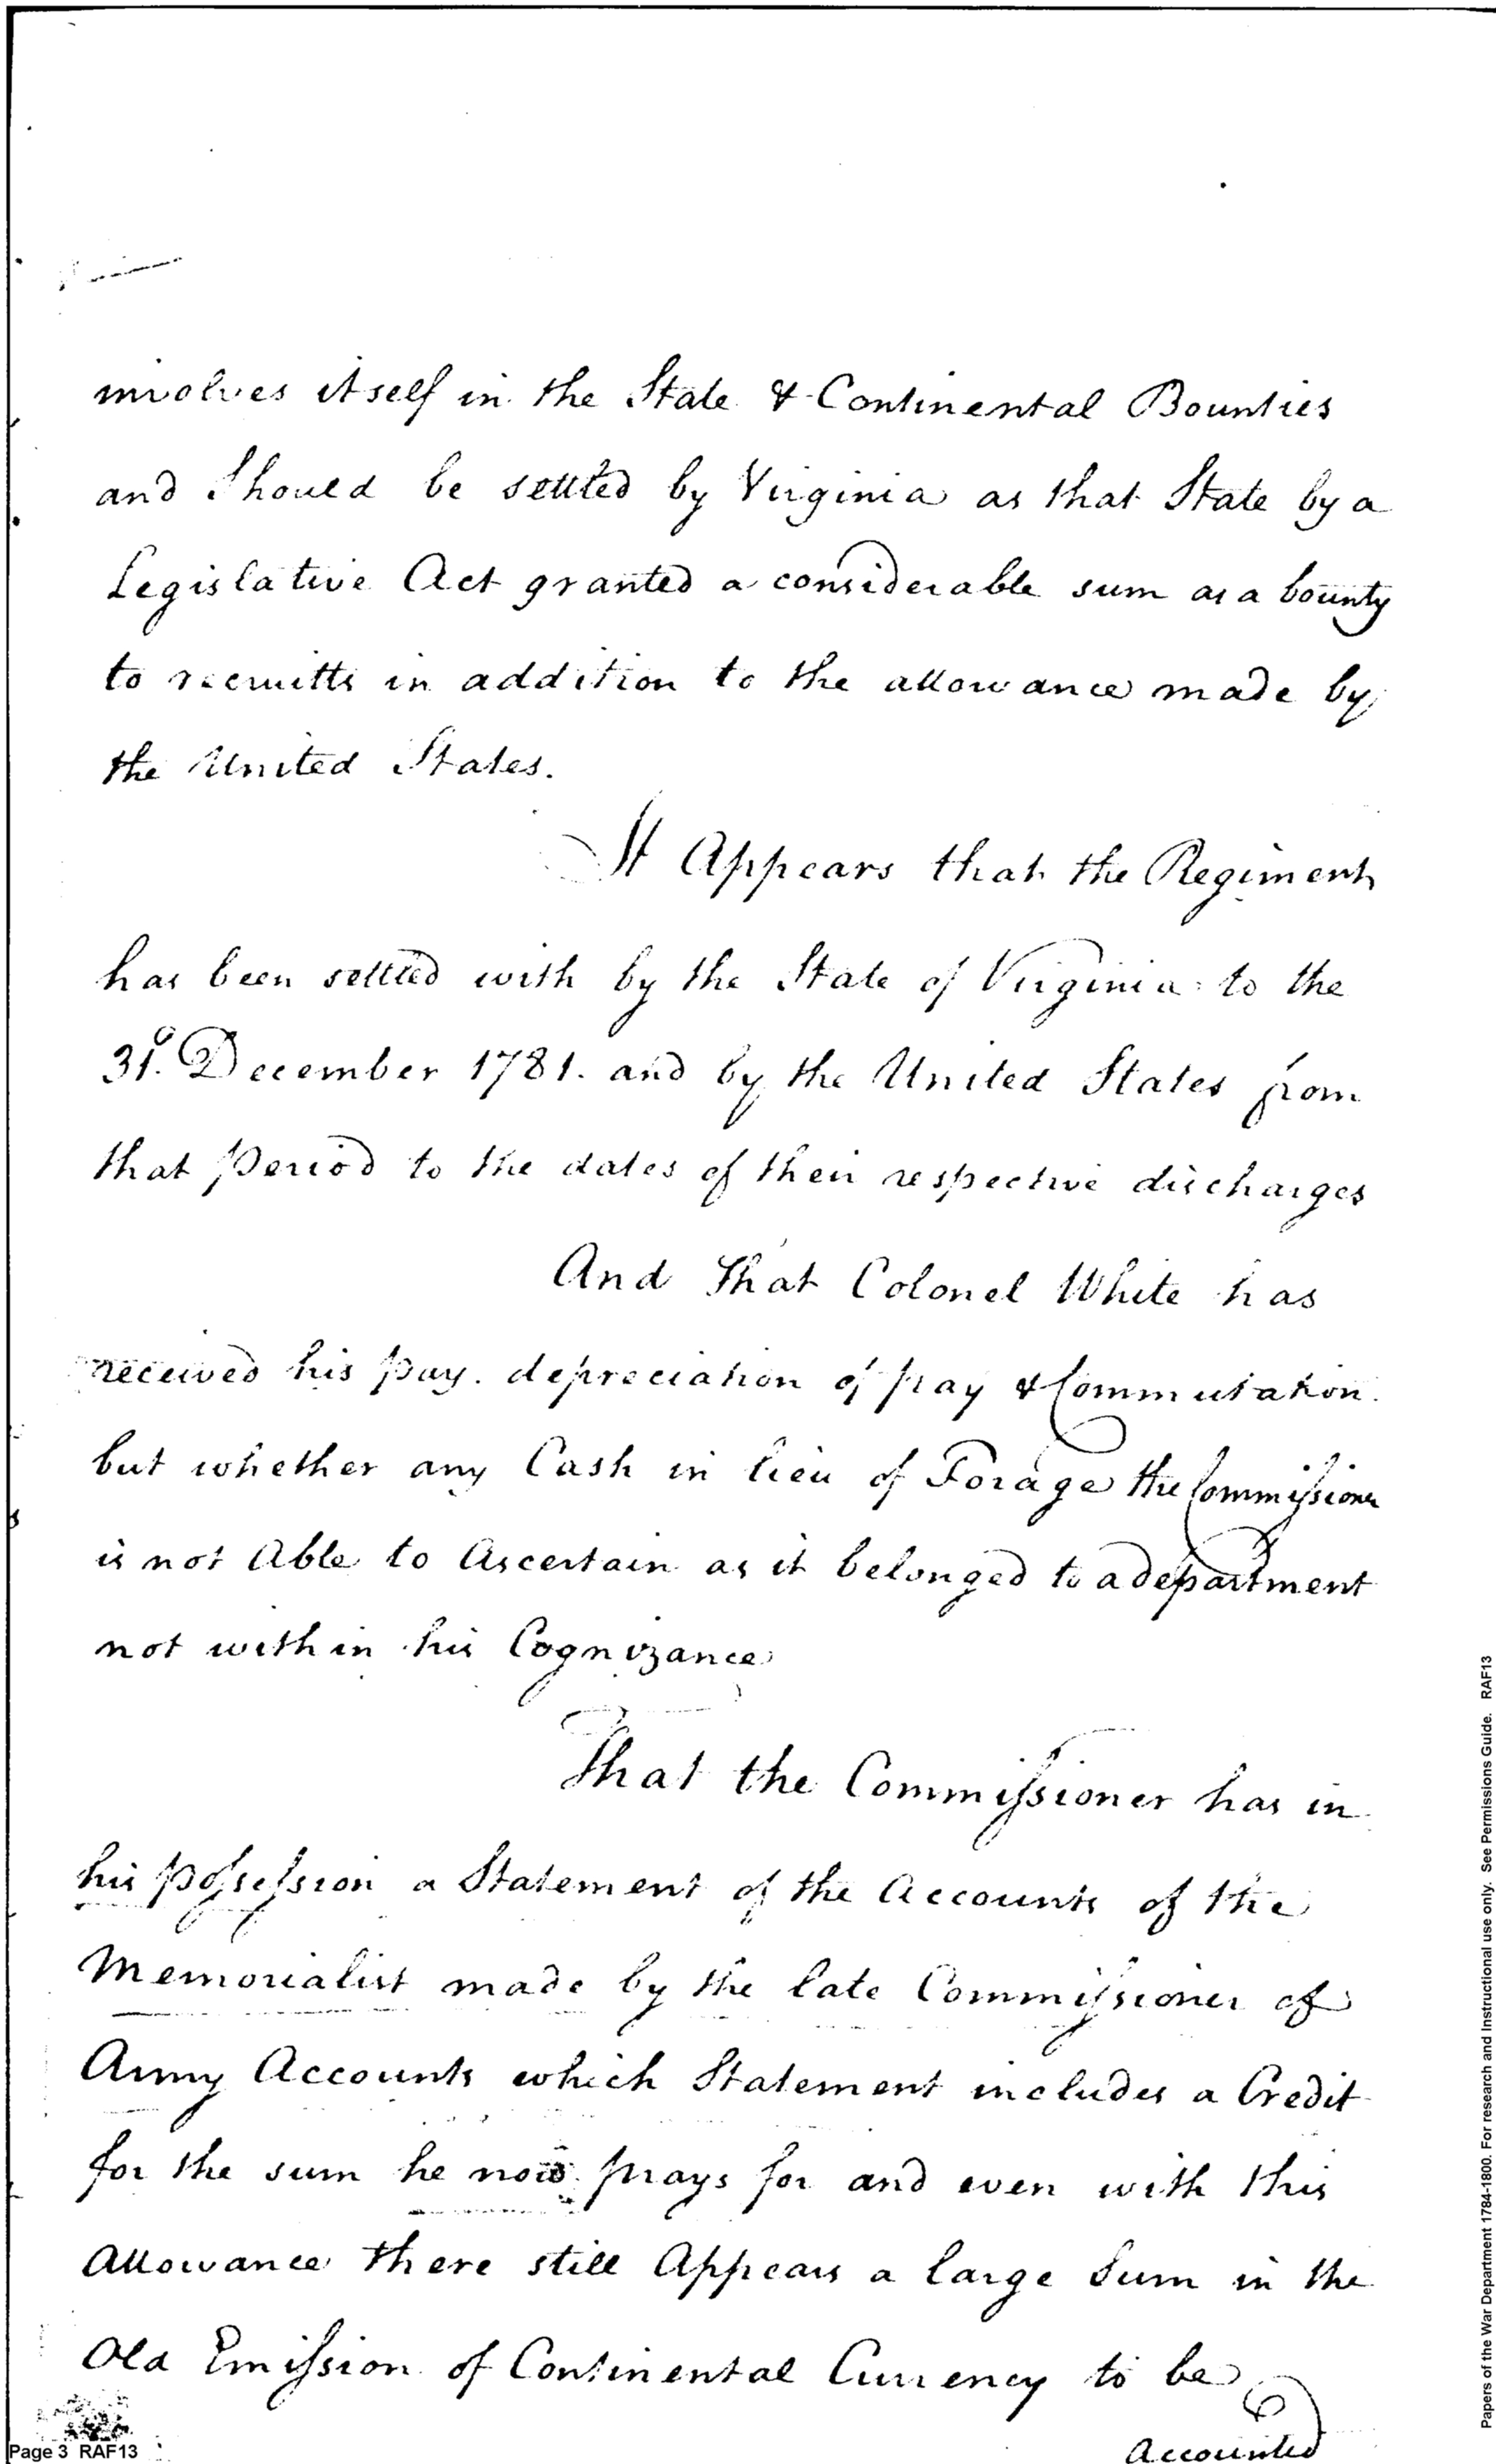 involves itself in the State & Continental Bounties
and Should be settled by Virginia as that State by a
Legislative Act granted a considerable sum as a bounty
to recruitts in addition to the allowance made by
the United States.
It Appears that the Regiment
has been settled with by the State of Virginia to the
31st. December 1781. and by the United States from
that period to the dates of their respective discharges
And That Colonel White has
received his pay. depreciation of pay & Commutation.
but whether any Cash in lieu of Forage the Commissioner
is not Able to Ascertain as it belonged to a department
not within his Cognizance
That the Commissioner has in
his possession a Statement of the Accounts of the
Memorialist made by the late Commissioner of
Army Accounts which Statement includes a Credit
for the sum he now prays for and even with this
Allowance there still Appears a large Sum in the
Old Emission of Continental Currency to be
Accounted
Page 3 RAF13
Papers of the War Department 1784-1800. For research and Instructional use only. See Permissions Guide. RAF13